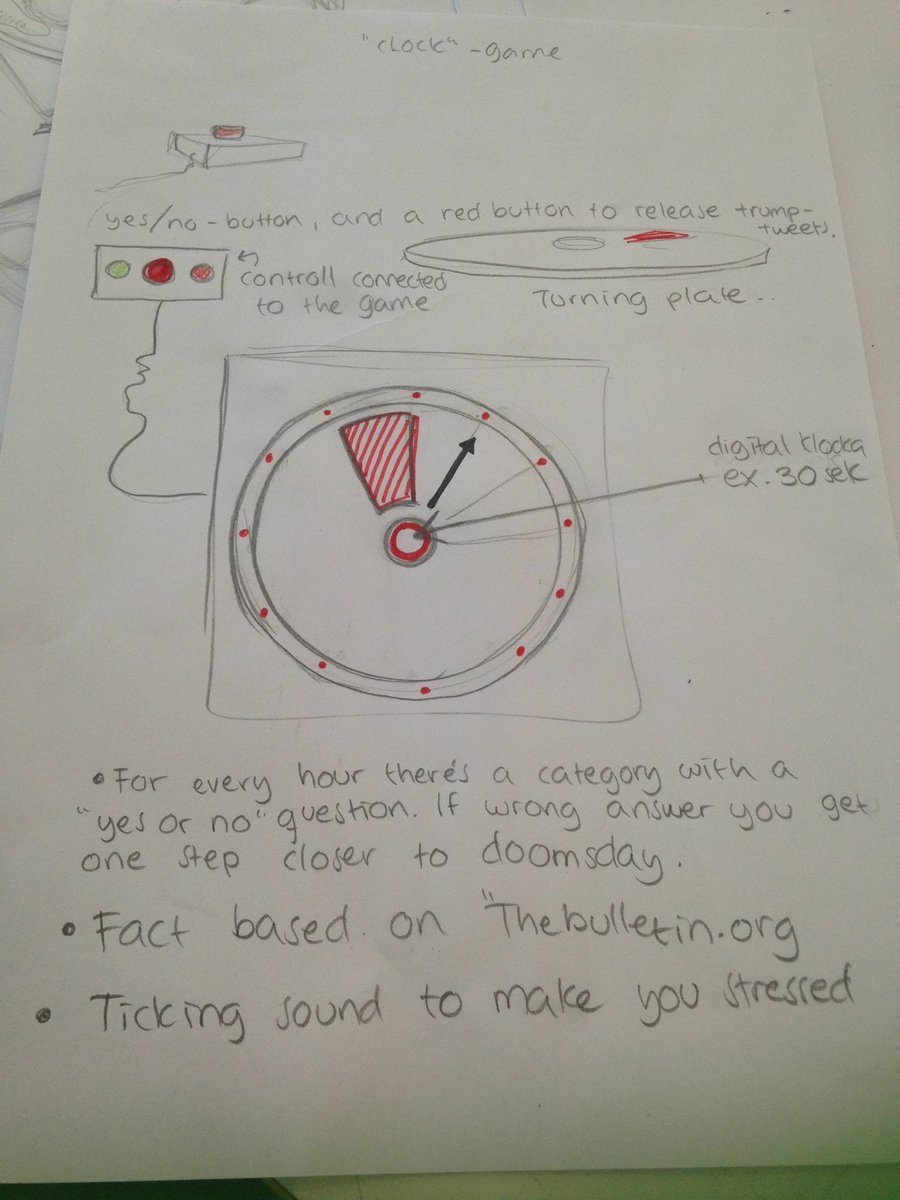 "CLOCK" - game
yes/no - button, and a red button to release trump-
tweets.
controll connected
to the game
Turning plate..
digital klocka
ex. 30 sek
• For every hour there's a category with a
"yes or no" question. If wrong answer you get
one step closer to doomsday.
• Fact based on "Thebulletin.org
• Ticking sound to make you stressed